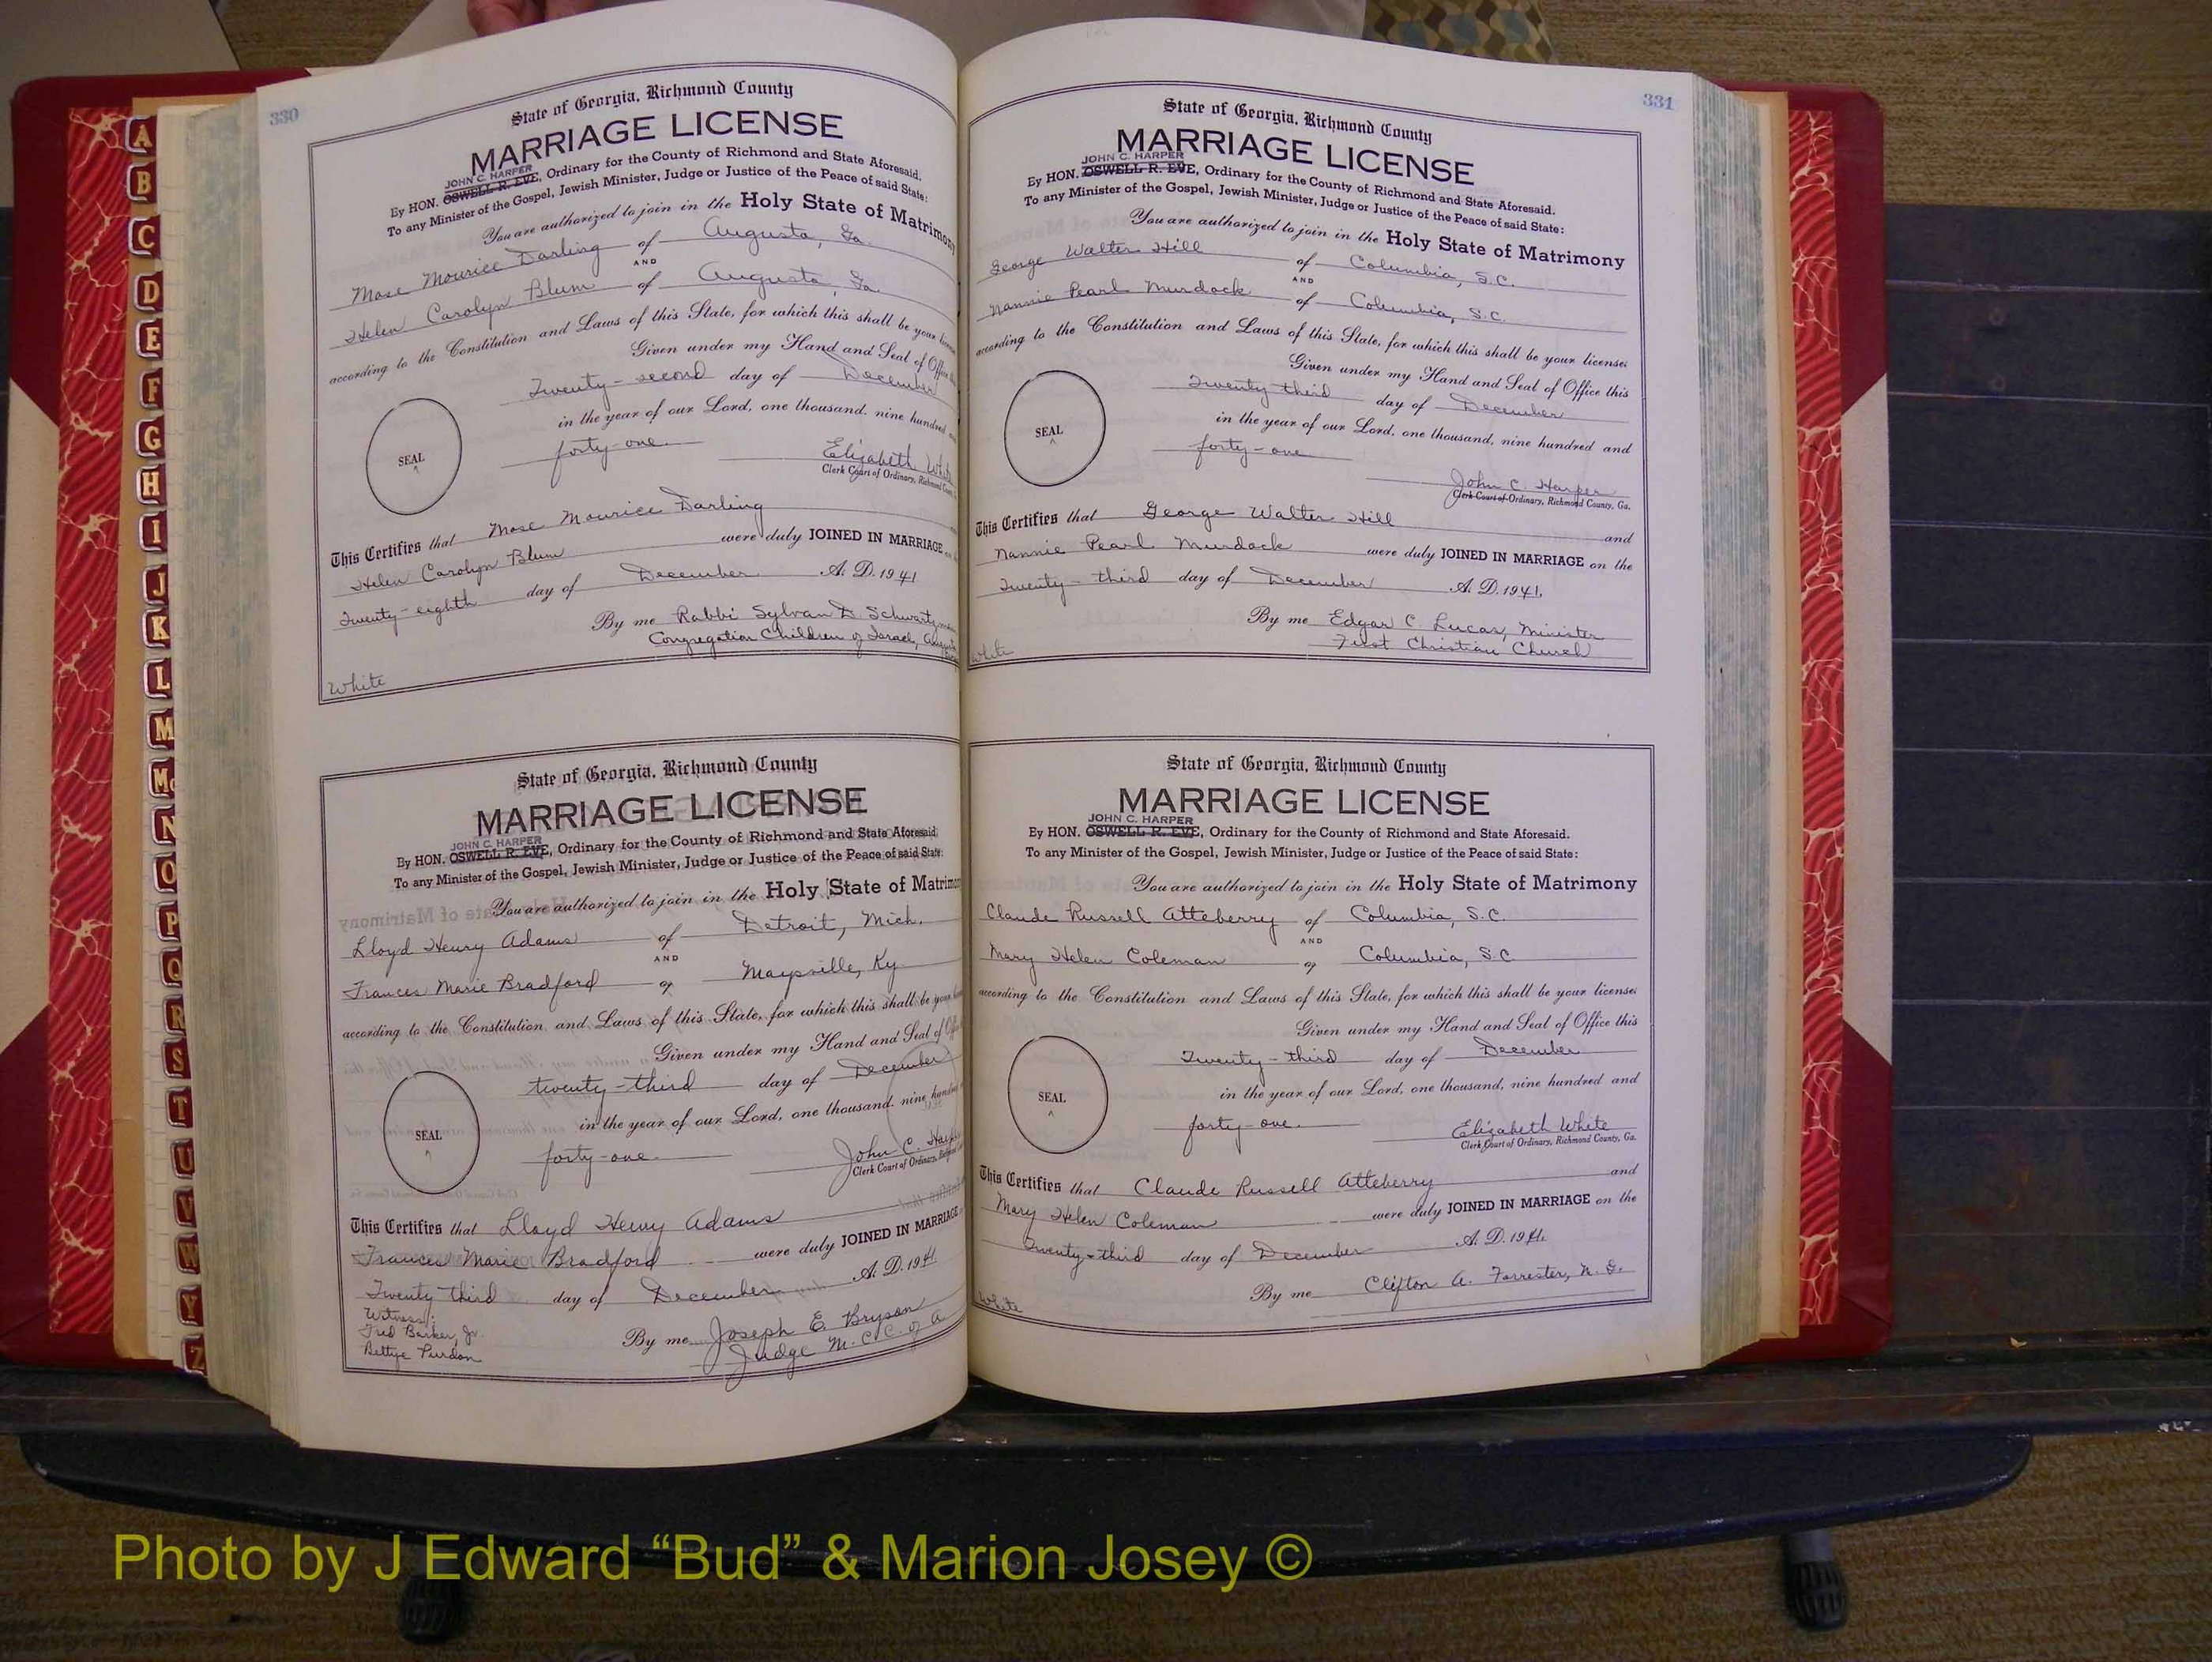 330
State of Georgia, Richmond County
MARRIAGE LICENSE
JOHN C. HARPER
By HON. OSWELL R. EVE, Ordinary for the County of Richmond and State Aforesaid.
To any Minister of the Gospel, Jewish Minister, Judge or Justice of the Peace of said State:
You are authorized to join in the Holy State of Matrimony
Mose Mourice Darling of Augusta, Ga.
AND
Helen Carolyn Blum of Augusta, Ga.
according to the Constitution and Laws of this State, for which this shall be your
Given under my Hand and Seal of
Twenty-second day of December
in the year of our Lord, one thousand, nine hundred
forty-one.
SEAL
Elizabeth
Clerk Court of Ordinary, Richmond
This Certifies that Mose Mourice Darling
Helen Carolyn Blum were duly JOINED IN MARRIAGE
Twenty-eighth day of December A. D. 1941
By me Rabbi Sylvan D.
Congregation Children of Israel,
White
State of Georgia, Richmond County
MARRIAGE LICENSE
JOHN C. HARPER
By HON. OSWELL R. EVE, Ordinary for the County of Richmond and State Aforesaid
To any Minister of the Gospel, Jewish Minister, Judge or Justice of the Peace of said State:
You are authorized to join in the Holy State of
Lloyd Henry Adams of Detroit, Mich.
AND
Frances Marie Bradford of Maysville, Ky.
according to the Constitution and Laws of this State, for which this shall be your
Given under my Hand and Seal of
twenty-third day of December
in the year of our Lord, one thousand, nine
forty-one.
SEAL
John C.
Clerk Court of Ordinary,
This Certifies that Lloyd Henry Adams
Frances Marie Bradford were duly JOINED IN MARRIAGE
Twenty third day of December A. D. 1941
Witness:
Fred Barker, Jr.
Bettye Purdon
By me Joseph E. Bryson
Judge M. C. C. of A
331
State of Georgia, Richmond County
MARRIAGE LICENSE
JOHN C. HARPER
By HON. OSWELL R. EVE, Ordinary for the County of Richmond and State Aforesaid.
To any Minister of the Gospel, Jewish Minister, Judge or Justice of the Peace of said State:
You are authorized to join in the Holy State of Matrimony
George Walter Hill of Columbia, S.C.
AND
Nannie Pearl Murdock of Columbia, S.C.
according to the Constitution and Laws of this State, for which this shall be your license:
Given under my Hand and Seal of Office this
Twenty third day of December
in the year of our Lord, one thousand, nine hundred and
forty-one
SEAL
John C. Harper
Clerk Court of Ordinary, Richmond County, Ga.
This Certifies that George Walter Hill and
Nannie Pearl Murdock were duly JOINED IN MARRIAGE on the
Twenty-third day of December A. D. 1941,
By me Edgar C. Lucas, Minister
First Christian Church
White
State of Georgia, Richmond County
MARRIAGE LICENSE
JOHN C. HARPER
By HON. OSWELL R. EVE, Ordinary for the County of Richmond and State Aforesaid.
To any Minister of the Gospel, Jewish Minister, Judge or Justice of the Peace of said State:
You are authorized to join in the Holy State of Matrimony
Claude Russell Atteberry of Columbia, S.C.
AND
Mary Helen Coleman of Columbia, S.C.
according to the Constitution and Laws of this State, for which this shall be your license:
Given under my Hand and Seal of Office this
Twenty-third day of December
in the year of our Lord, one thousand, nine hundred and
forty-one.
SEAL
Elizabeth White
Clerk Court of Ordinary, Richmond County, Ga.
This Certifies that Claude Russell Atteberry and
Mary Helen Coleman were duly JOINED IN MARRIAGE on the
Twenty-third day of December A. D. 1941.
By me Clifton A. Forrester, N. G.
White
A
B
C
D
E
F
G
H
I
J
K
L
M
Mc
N
O
P
Q
R
S
T
U
V
W
Y
Z
Photo by J Edward “Bud” & Marion Josey ©